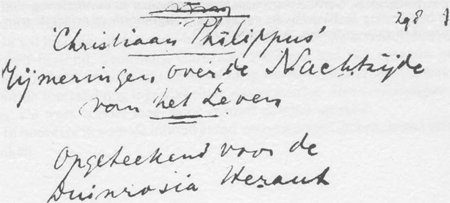 298
'Christiaan Philippus'
Rijmeringen over de Nachtzijde
van het Leven
Opgeteekend voor de
Duinrosia Heraut